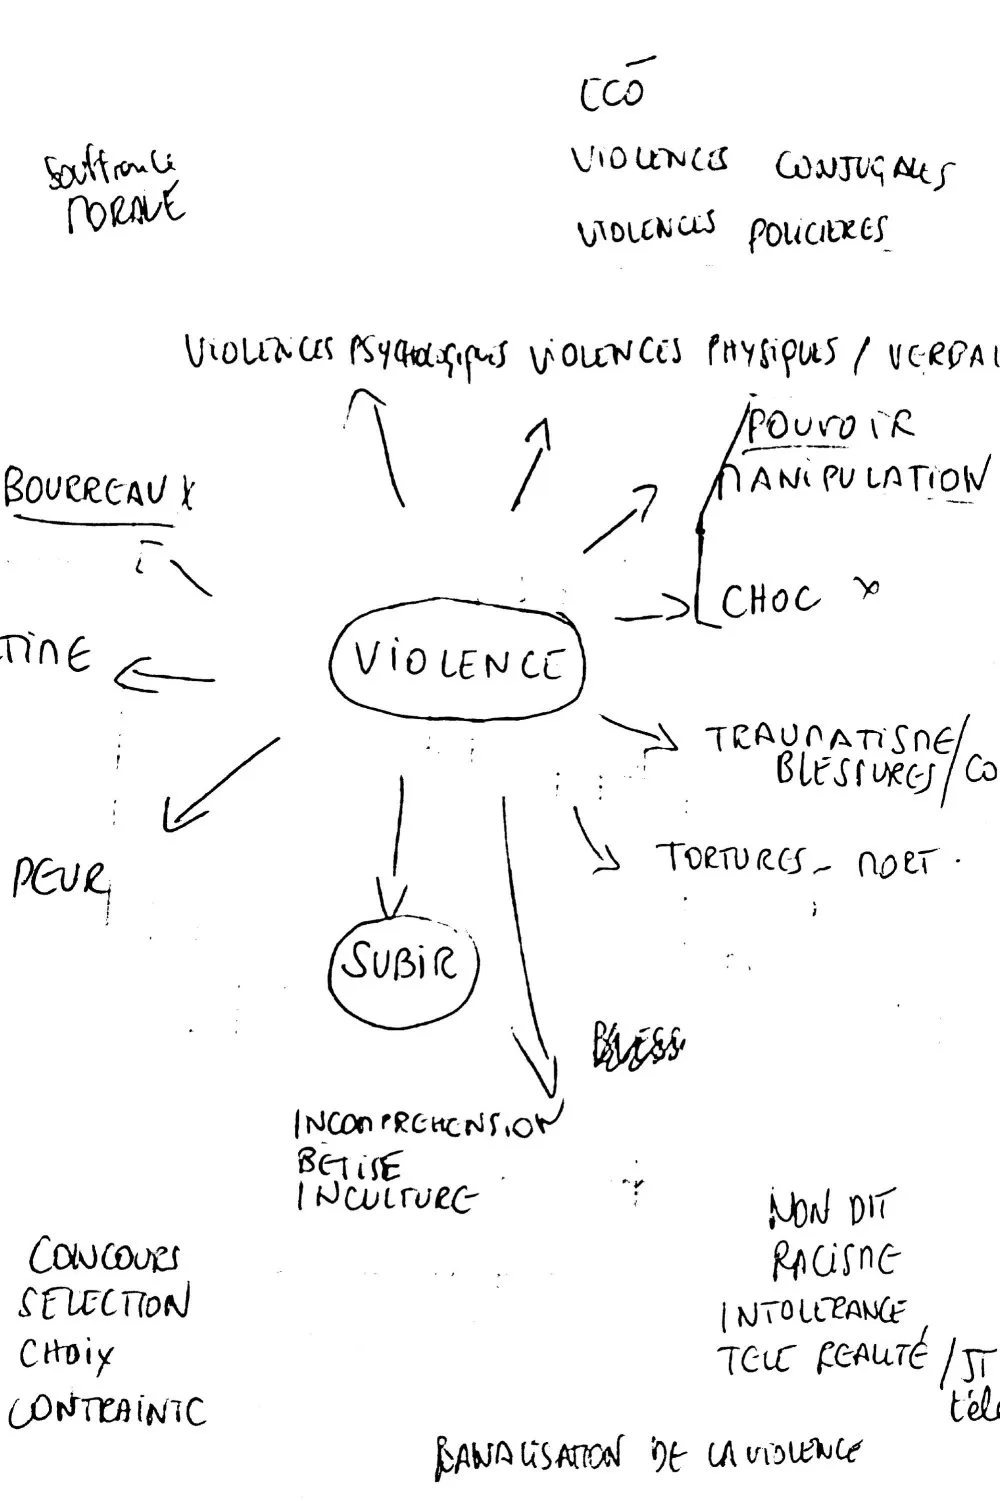 ECO
VIOLENCES CONJUGALES
VIOLENCES POLICIERES
Souffrance
MORALE
VIOLENCES PSYCHOLOGIQUES VIOLENCES PHYSIQUES / VERBAL
POUVOIR
MANIPULATION
BOURREAU X
CHOC X
VIOLENCE
TIME
TRAUMATISME/
BLESSURES/CO
TORTURES - MORT.
PEUR
SUBIR
BLESS
INCOMPREHENSION
BETISE
INCULTURE
NON DIT
RACISME
INTOLERANCE
TELE REALITÉ / JT
télé
CONCOURS
SELECTION
CHOIX
CONTRAINTE
BANALISATION DE LA VIOLENCE